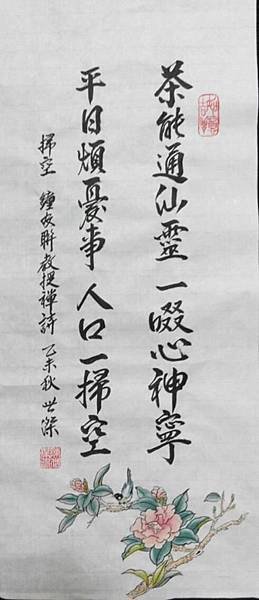 茶能通仙靈一啜心神寧
平日煩憂事人口一掃空
掃空 鐘友聯教授禪詩 乙未秋 世深